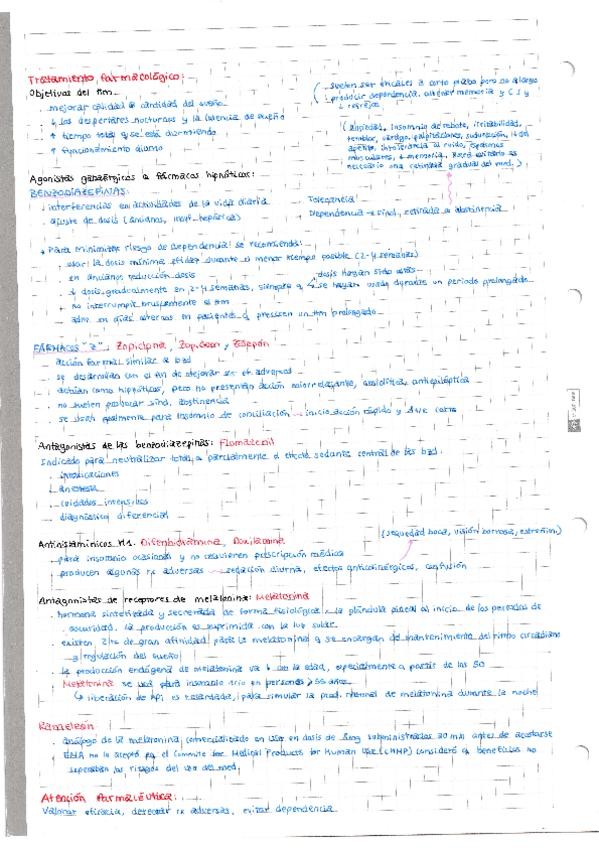 Tratamiento farmacológico:
Objetivos del ttm
. mejorar calidad o cantidad del sueño
. ↓ los despertares nocturnos y la latencia de sueño
. ↑ tiempo total q se está durmiendo
. ↑ funcionamiento diurno
suelen ser eficaces a corto plazo pero no a largo
producir dependencia, alterar memoria y
reflejos
(ansiedad, insomnio de rebote, irritabilidad,
temblor, vértigo, palpitaciones, sudoración, ↓ del
apetito, intolerancia al ruido, espasmos
musculares, ↓ memoria. Para evitarlo es
necesario una retirada gradual del med.)
Agonistas gabaérgicos o fármacos hipnóticos:
BENZODIAZEPINAS:
. interferencias en actividades de la vida diaria
. ajuste de dosis (ancianos, insuf. hepática)
Tolerancia
Dependencia → sínd. retirada o abstinencia
Para minimizar riesgo de dependencia se recomienda:
. usar la dosis mínima eficaz durante el menor tiempo posible (2-4 semanas)
. en ancianos reducción dosis
. ↓ dosis gradualmente en 2-4 semanas, siempre q
dosis hayan sido altas
se hayan usado durante un periodo prolongado
. no interrumpir bruscamente el ttm
. adm. en días alternos en pacientes q precisen un ttm prolongado
FÁRMACOS "Z" Zopiclona, Zolpidem y Zaleplón
. acción farmacol similar a bzd
. se desarrollan con el fin de mejorar sus ef. adversos
. actúan como hipnóticos, pero no presentan acción miorrelajante, ansiolítica, antiepiléptica
. no suelen provocar sínd. abstinencia
. se usan normalmente para insomnio de conciliación → inicio acción rápido y dura corto
Antagonistas de las benzodiazepinas: Flumazenil
Indicado para neutralizar total o parcialmente el efecto sedante central de las bzd:
. intoxicaciones
. anestesia
. cuidados intensivos
. diagnóstico diferencial
Antihistamínicos H1. Difenhidramina, Doxilamina
(sequedad boca, visión borrosa, estreñim.)
. para insomnio ocasional y no requieren prescripción médica
. producen algunas rx adversas → sedación diurna, efectos anticolinérgicos, confusión
Antagonistas de receptores de melatonina: Melatonina
. hormona sintetizada y secretada de forma fisiológica x la glándula pineal al inicio de los periodos de
oscuridad, la producción es suprimida con la luz solar
. existen 2 de gran afinidad para la melatonina q se encargan de mantenimiento del ritmo circadiano
y regulación del sueño
. la producción endógena de melatonina va ↓ con la edad, especialmente a partir de los 50
Melatonina se usa para insomnio en personas > 55 años
↳ liberación de es retardada, para simular la prod. normal de melatonina durante la noche
Ramelteón
. análogo de la melatonina, comercializado en USA en dosis de 8mg administrados 30 min antes de acostarse
EMA no lo aceptó pq el Committe for Medical Products for Human Use (CHMP) consideró q beneficios no
superaban los riesgos del uso del med.
Atención farmacéutica:
Valorar eficacia, detectar rx adversas, evitar dependencia